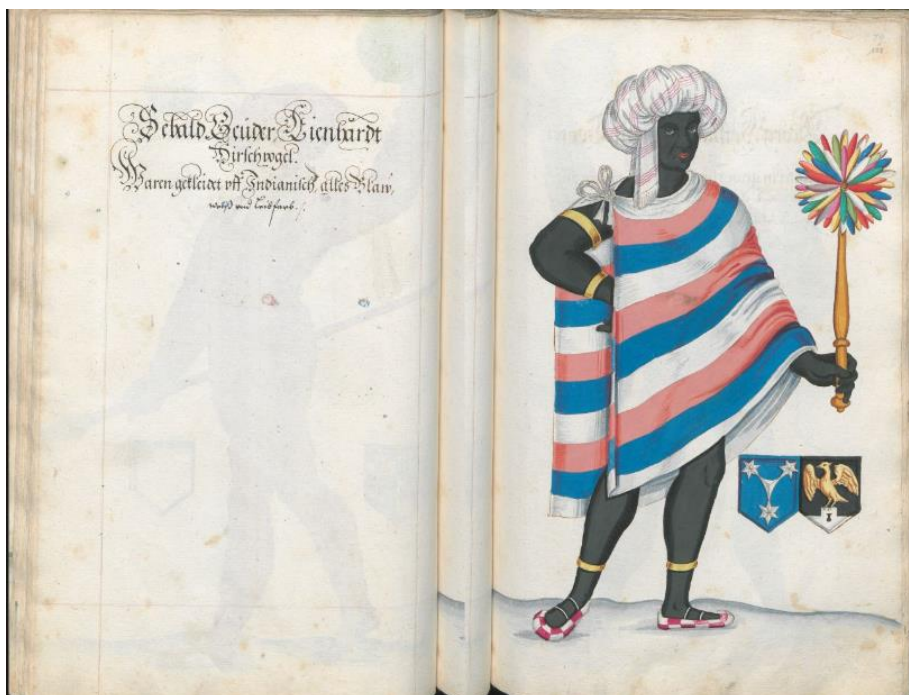 Sebald Geüder Lienhardt
Hirschvogel.
Waren gekleidet vff Indianisch, alles Blaw,
weiß vnd leibfarb.